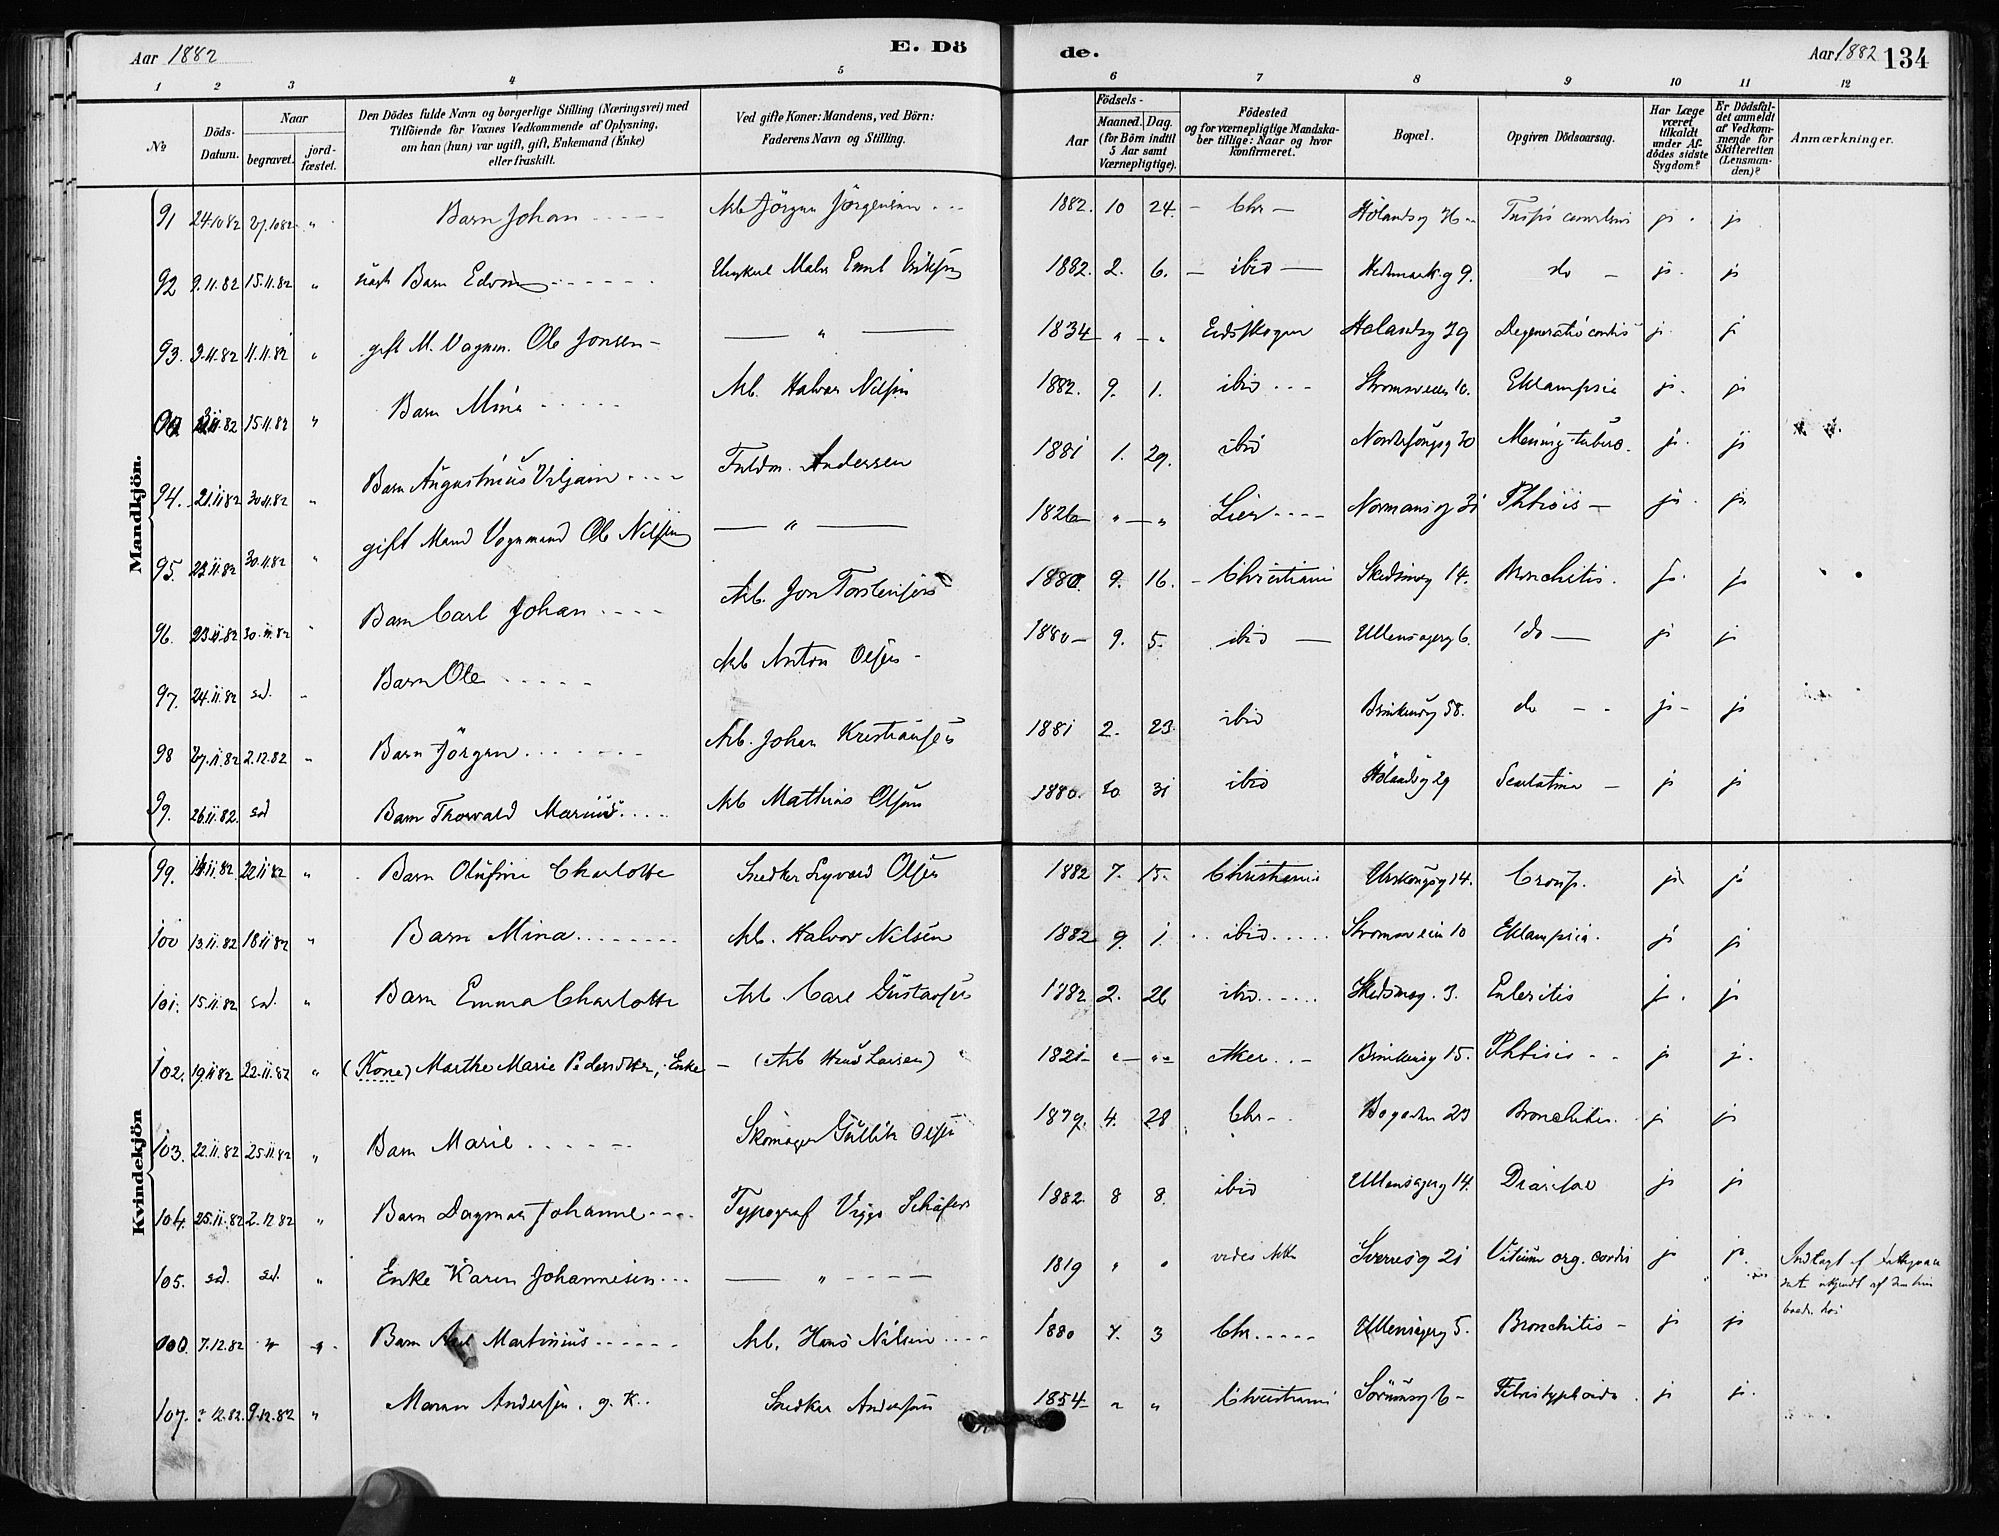 Aar 1882
E. Dö
de.
Aar 1882
134
1 2 3 4 5 6 7 8 9 10 11 12
No
Döds-Datum.
Naar
begravet.
jord-fæstet.
Den Dödes fulde Navn og borgerlige Stilling (Næringsvei) med
Tilföiende for Voxnes Vedkommende af Oplysning,
om han (hun) var ugift, gift, Enkemand (Enke)
eller fraskilt.
Ved gifte Koner: Mandens, ved Börn:
Faderens Navn og Stilling.
Födsels-
Aar
Maaned. Dag.
(for Börn indtil
5 Aar samt
Værnepligtige).
Födested
og for værnepligtige Mandska-
ber tillige: Naar og hvor
konfirmeret.
Bopæl.
Opgiven Dödsaarsag.
Har Læge
været
tilkaldt
under Af-
dödes sidste
Sygdom?
Er Dödsfal-
det anmeldt
af Vedkom-
mende for
Skifteretten
(Lensman-
den)?
Anmærkninger.
Mandkjön.
91 24 10 82 27.10 82 " Barn Johan Arb Jörgen Jörgensen 1882. 10 24. Chr Hölandsg ja ja
92 9.11.82 15.11.82 " Barn Edvin Maler Emil 1882. 2. 6. ibid Hedmarksg 9. do ja ja
93. 3.11.82 11.11.82 " gift M. Vognm. Ole Jonsen " 1834 " " Eidskogen Hölandsg Degeneratio cordis ja ja
15.11.82 " Barn Mina Arb. Halvor Nilsen 1882. 9. 1. ibid Strömsveien 10. Eklampsia ja ja
94. 21.11 82 30.11.82 " Barn Augustinius Viljam Fuldm. Andersen 1881 1. 29. ibid 30 Mening. tuberc. ja ja
95. 23.11 82 30.11.82 " gift Mand Vognmand Ole Nilsen " 1826 " " Lier Normansg 31 Phtisis ja ja
96. 23.11.82 30.11.82 " Barn Carl Johan Arb. Jon Torstensen 1880. 9. 16. Christiania Skedsmog 14. Bronchitis. ja ja
97. 24.11.82 sad. " Barn Ole Arb Anton Olsen 1880 9. 5. ibid Ullensagerg 6. do ja ja
98 27.11.82 2.12.82 " Barn Jörgen Arb. Johan Kristiansen 1881 2. 23 ibid Brinkensg 58. do ja ja
99. 26.11.82. sad Barn Thorvald Marius Arb Mathias Olsen 1880. 10 31 ibid Hölandsg 29 Scarlatina ja ja
Kvindekjön
99. 14.11.82. 22 11 82 " Barn Olufine Charlotte Snedker Sigvard Olsen 1882 7. 15. Christiania Urskougsg 14. Croup. ja ja
100 13.11.82 18 11 82 " Barn Mina Arb. Halvor Nilsen 1882 9. 1. ibid Strömsveien 10 Eklampsia. ja ja
101. 15.11.82 sad. " Barn Emma Charlotte Arb. Carl Gustavsen 1882 2. 26 ibid Skedsmog. 3. Enteritis ja ja
102. 19.11 82 22.11.82 " (Kone) Marthe Marie Pedersdtter, Enke (Arb Larsen) 1821 " " Aker Brinkensg 15. Phtisis ja ja
103. 22.11.82 25.11 82 " Barn Marie Skomager Gullik Olsen 1879. 4. 28 Chr 23 Bronchitis ja ja
104. 25.11.82 2.12 82 " Barn Dagmar Johanne Typograf Viggo 1882. 8 8. ibid Ullensagerg 14. ja ja
105. sad. sad. " Enke Karen Johannesen " 1819 " " Sverresg 21 Vitium org. cordis ja ja
7.12.82 " Barn Martinius Arb. Hans Nilsen 1880 7. 3 Chr Ullensagerg 5. Bronchitis ja ja
107. ? 12.82. 9.12.82 " Maren Andersen. g. K. Snedker Andersen 1854 " " Christiania Sörumsg 6 Febris typhoida ja ja